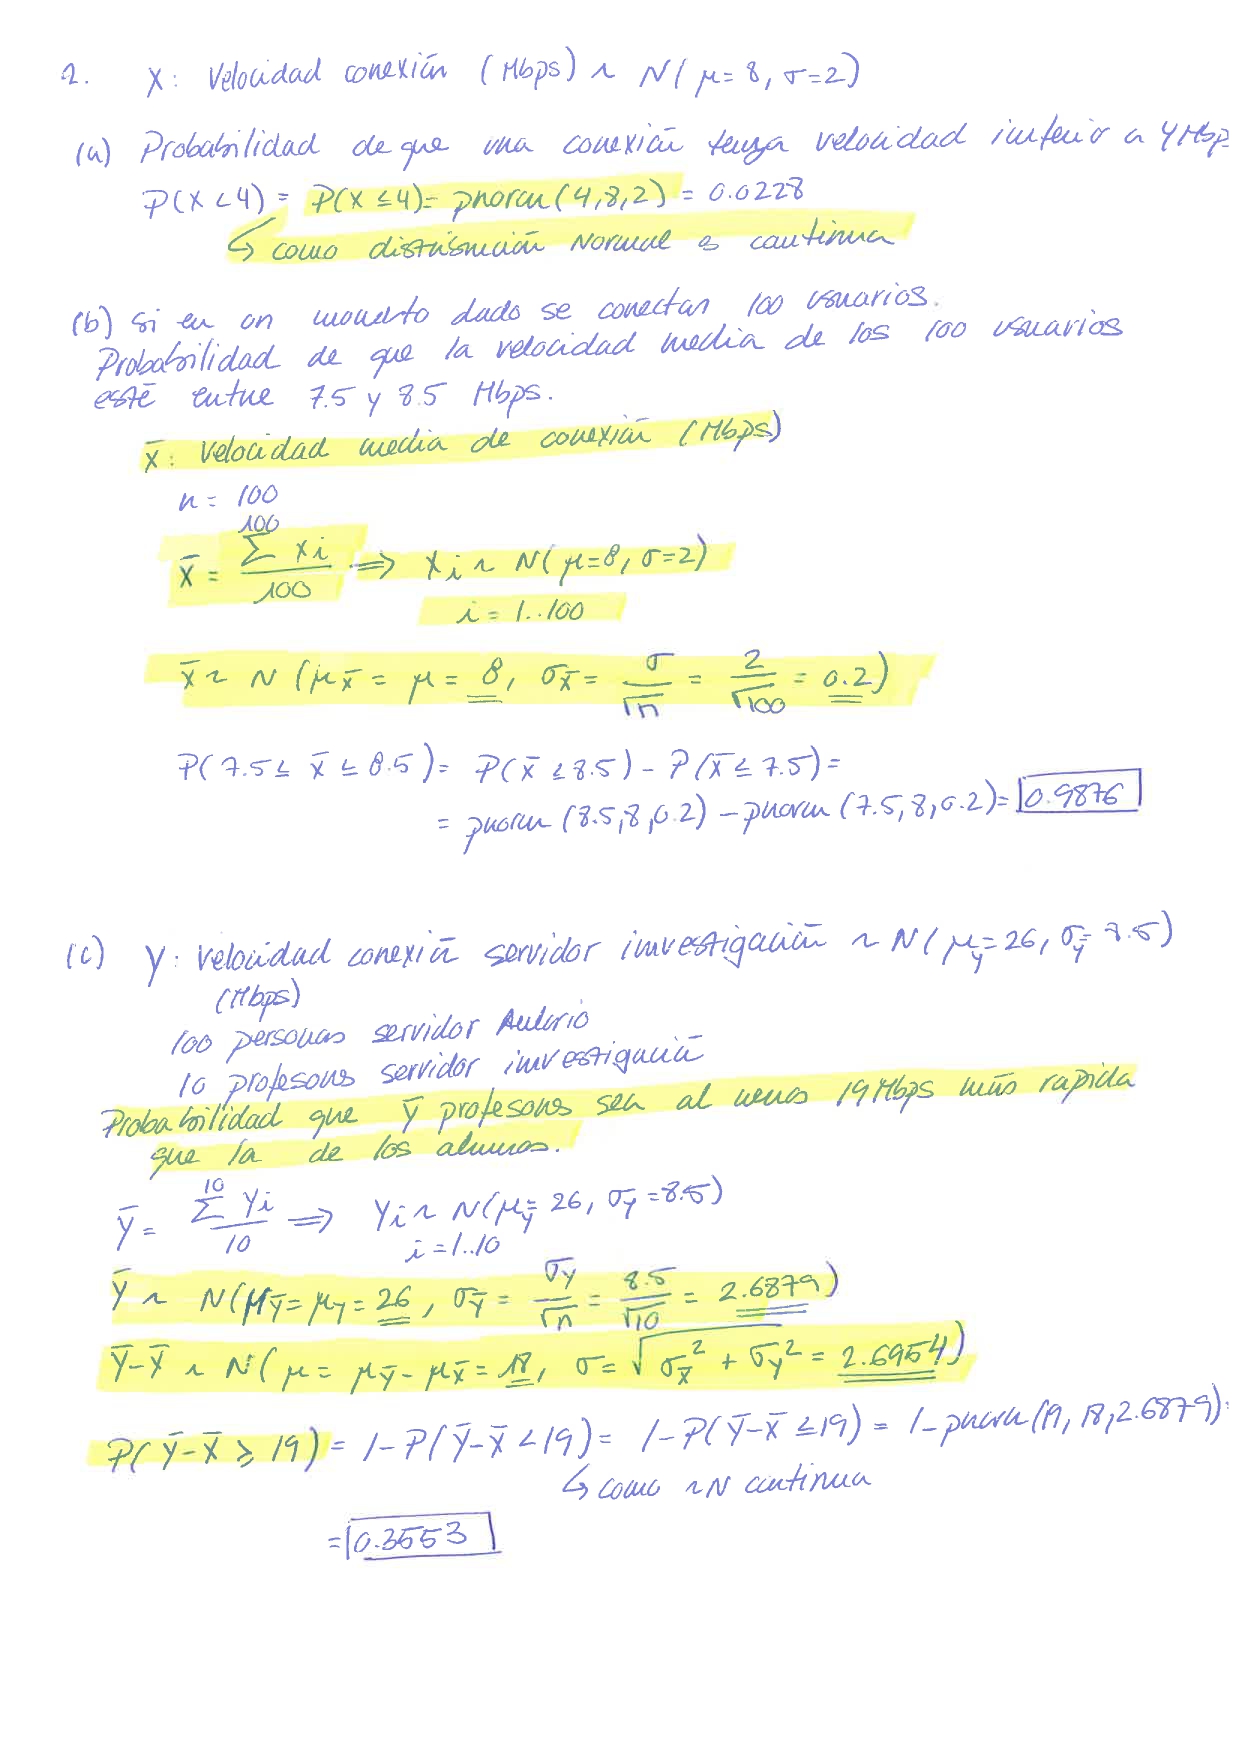 1. X: Velocidad conexión (Mbps) ~ N(μ=8, σ=2)
(a) Probabilidad de que una conexión tenga velocidad inferior a 4Mbp
P(X<4) = P(X≤4) = pnorm(4,8,2) = 0.0228
↳ como distribución Normal es continua
(b) Si en un momento dado se conectan 100 usuarios.
Probabilidad de que la velocidad media de los 100 usuarios
esté entre 7.5 y 8.5 Mbps.
X̄: Velocidad media de conexión (Mbps)
n = 100
X̄ = (100 Σ Xi)/100 ⟹ Xi ~ N(μ=8, σ=2)
i = 1..100
X̄ ~ N(μx̄ = μ = 8, σx̄ = σ/√n = 2/√100 = 0.2)
P(7.5 ≤ X̄ ≤ 8.5) = P(X̄ ≤ 8.5) - P(X̄ ≤ 7.5) =
= pnorm(8.5,8,0.2) - pnorm(7.5,8,0.2) = 0.9876
(c) Y: Velocidad conexión servidor investigación ~ N(μy=26, σy=8.5)
(Mbps)
100 personas servidor Aulario
10 profesores servidor investigación
Probabilidad que Ȳ profesores sea al menos 19Mbps más rapida
que la de los alumnos.
Ȳ = (10 Σ Yi)/10 ⟹ Yi ~ N(μy=26, σy=8.5)
i = 1..10
Ȳ ~ N(μȳ = μy = 26, σȳ = σy/√n = 8.5/√10 = 2.6879)
Ȳ-X̄ ~ N(μ = μȳ - μx̄ = 18, σ = √(σx̄² + σȳ²) = 2.6954)
P(Ȳ-X̄ ≥ 19) = 1-P(Ȳ-X̄ < 19) = 1-P(Ȳ-X̄ ≤ 19) = 1-pnorm(19,18,2.6879)=
↳ como ~N continua
= 0.3553